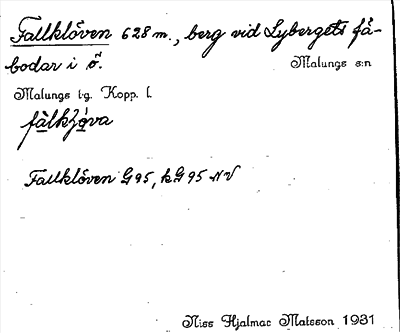 Fallklöven 628 m., berg vid Lybergets fä-
bodar i ö. Malungs s:n
Malungs tg. Kopp. l.
Fallklöven G 95, k G 95 NV
Niss Hjalmar Matsson 1931